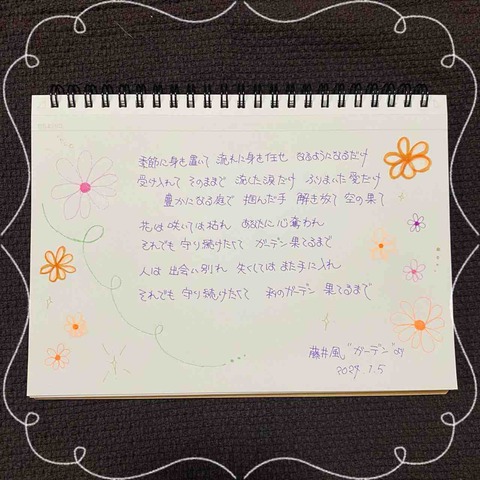 季節に身を置いて 流れに身を任せ なるようになるだけ
受け入れて そのままで 流した涙だけ ふりまいた愛だけ
豊かになる庭で 掴んだ手 解き放て 空の果て
花は咲いては枯れ あなたに心奪われ
それでも守り続けたくて ガーデン果てるまで
人は出会い別れ 失くしてはまた手に入れ
それでも守り続けたくて 私のガーデン 果てるまで
藤井風"ガーデン"より
2024.1.5